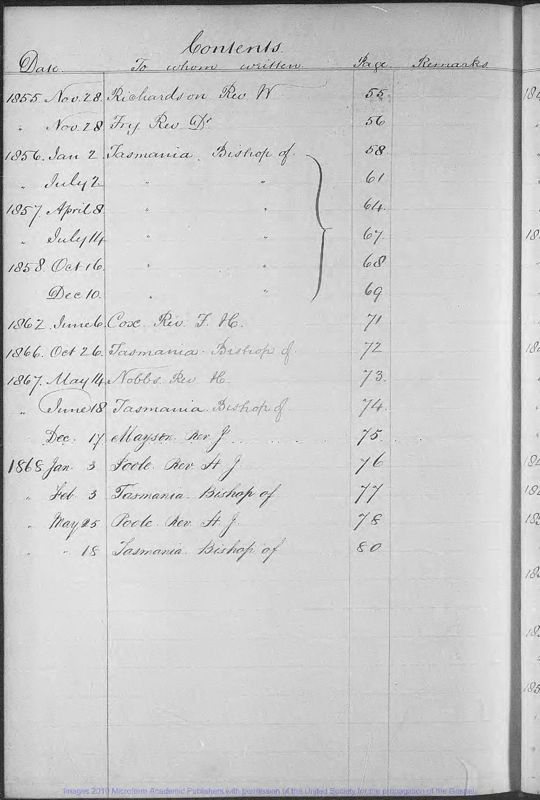 Contents.
Date. To whom written. Page. Remarks
1855 Nov. 28 Richardson Rev W 55
" Nov. 28 Fry Rev Dr 56
1856. Jan 2. Tasmania. Bishop of 58
" July 2 " " 61
1857 April 8 " " 64
" July 14 " " 67
1858. Oct 16 " " 68
Dec 10. " " 69
1862. June 6. Cox. Rev. F. H. 71
1866. Oct 26. Tasmania. Bishop of 72
1867. May 14. Nobbs. Rev H. 73
" June 18 Tasmania. Bishop of 74
Dec. 17 Mayson. Rev J 75
1868 Jan. 3 Poole. Rev H J 76
" Feb 3 Tasmania. Bishop of 77
" May 25 Poole. Rev. H J. 78
" " 18 Tasmania. Bishop of 80
Images 2010 Microform Academic Publishers with permission of the United Society for the propagation of the Gospel